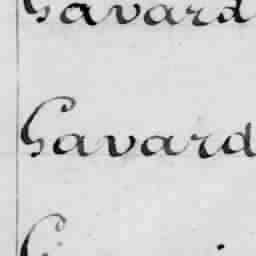 Gavard
Gavard